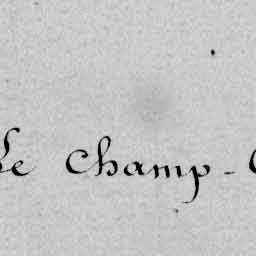 Le Champ-